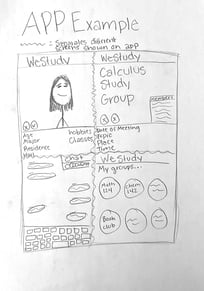 APP Example
: Separates different
screens shown on app
WeStudy
WeStudy
Calculus
Study
Group
members
Age
Major
Residence
Hall
hobbies
Classes
Date of Meeting
Topic
Place
Time
Chat
WeStudy
My groups...
Math
124
Chem
142
Book
club